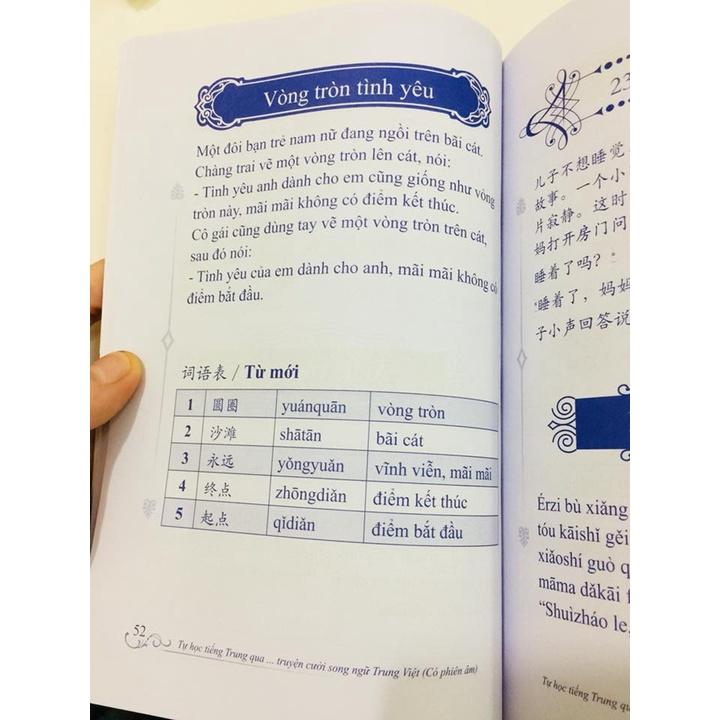 Vòng tròn tình yêu
Một đôi bạn trẻ nam nữ đang ngồi trên bãi cát.
Chàng trai vẽ một vòng tròn lên cát, nói:
- Tình yêu anh dành cho em cũng giống như vòng
tròn này, mãi mãi không có điểm kết thúc.
Cô gái cũng dùng tay vẽ một vòng tròn trên cát,
sau đó nói:
- Tình yêu của em dành cho anh, mãi mãi không có
điểm bắt đầu.
词语表 / Từ mới
1 圆圈 yuánquān vòng tròn
2 沙滩 shātān bãi cát
3 永远 yǒngyuǎn vĩnh viễn, mãi mãi
4 终点 zhōngdiǎn điểm kết thúc
5 起点 qǐdiǎn điểm bắt đầu
52
Tự học tiếng Trung qua ... truyện cười song ngữ Trung Việt (Có phiên âm)
23
儿子不想睡觉
故事。一个小
片寂静。这时
妈打开房门问
睡着了吗?
"睡着了，妈妈
子小声回答说
Érzi bù xiǎng
tóu kāishǐ gěi
xiǎoshí guò q
māma dǎkāi f
“Shuìzháo le,
Tự học tiếng Trung qua